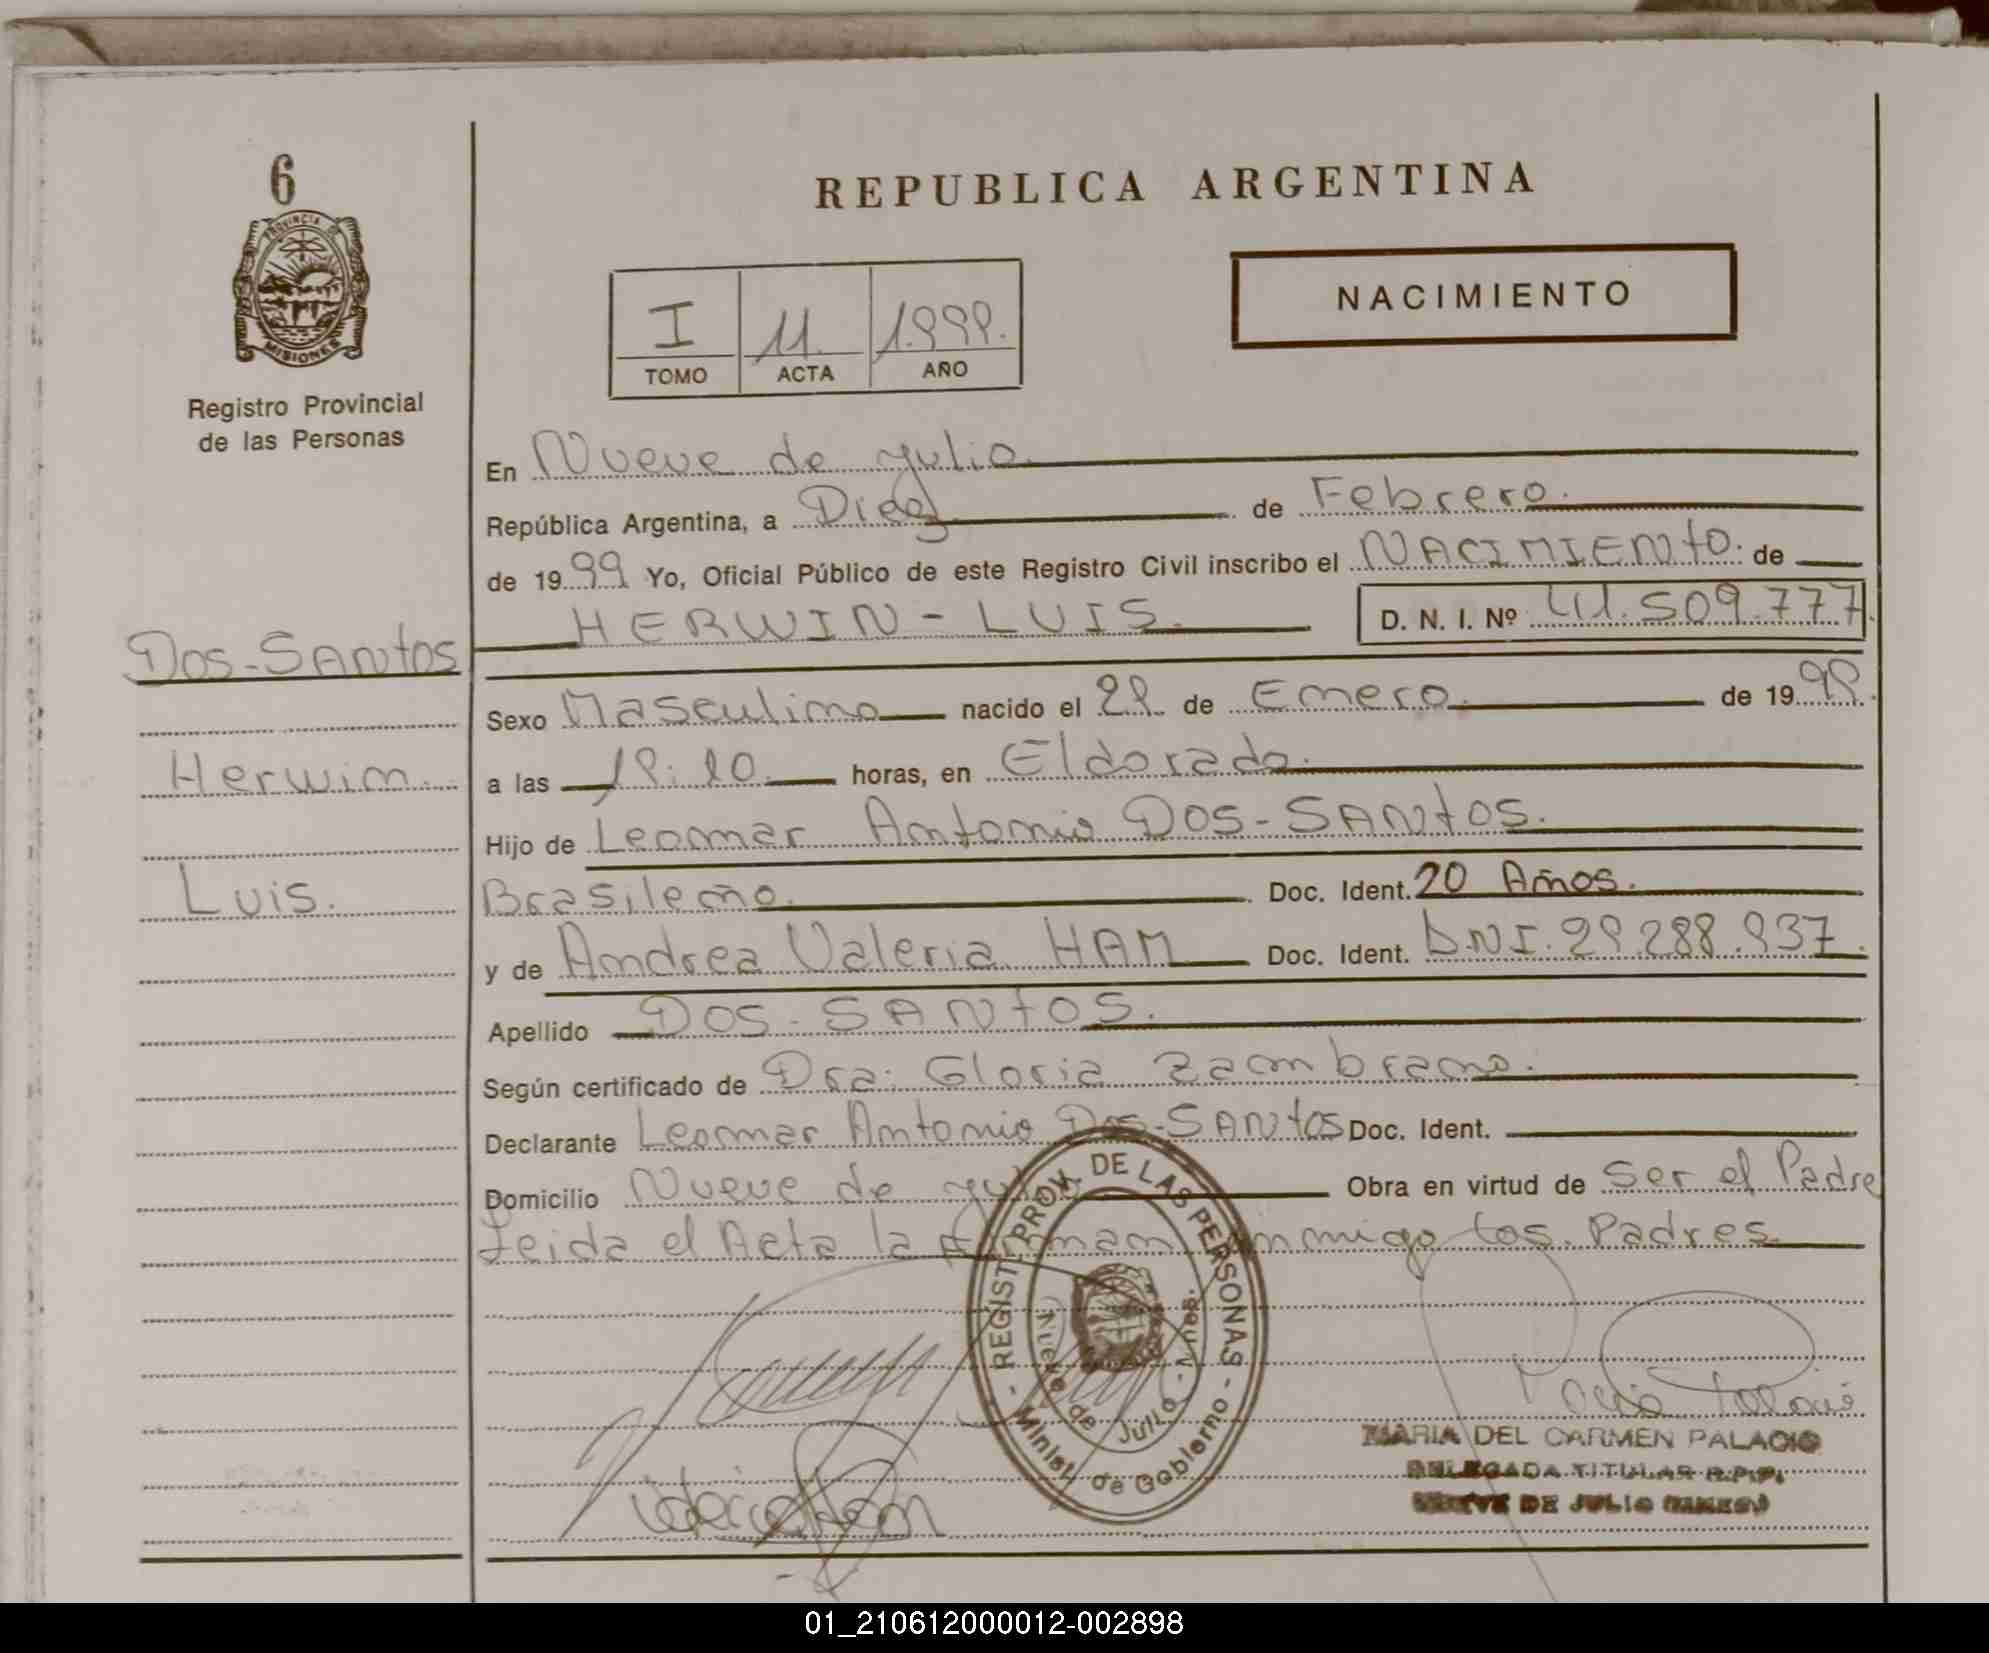 6
REPUBLICA ARGENTINA
PROVINCIA DE
MISIONES
Registro Provincial
de las Personas
NACIMIENTO
I 11. 1.999.
TOMO ACTA AÑO
En Nueve de julio.
República Argentina, a Diez de Febrero.
de 1999 Yo, Oficial Público de este Registro Civil inscribo el NACIMIENTO. de
HERWIN - LUIS. D. N. I. Nº 41.509.777.
Dos-SANtos
Sexo Masculino nacido el 29 de Enero. de 1999.
Herwin.
a las 19:10. horas, en Eldorado.
Hijo de Leomar Antonio DOS-SANtOS.
Luis.
Brasileño. Doc. Ident. 20 Años.
y de Andrea Valeria HAM Doc. Ident. D.N.I. 29.288.937.
Apellido DOS-SANtOS.
Según certificado de Dra. Gloria Zambrano.
Declarante Leomar Antonio Dos-SANtos Doc. Ident.
Domicilio Nueve de julio Obra en virtud de Ser el Padre
Leida el Acta la firman conmigo los Padres
REGIST. PROV. DE LAS PERSONAS
Nueve de Julio - Mnes.
Minist. de Gobierno
MARIA DEL CARMEN PALACIO
DELEGADA TITULAR R.P.P.
NUEVE DE JULIO (MNES)
01_210612000012-002898